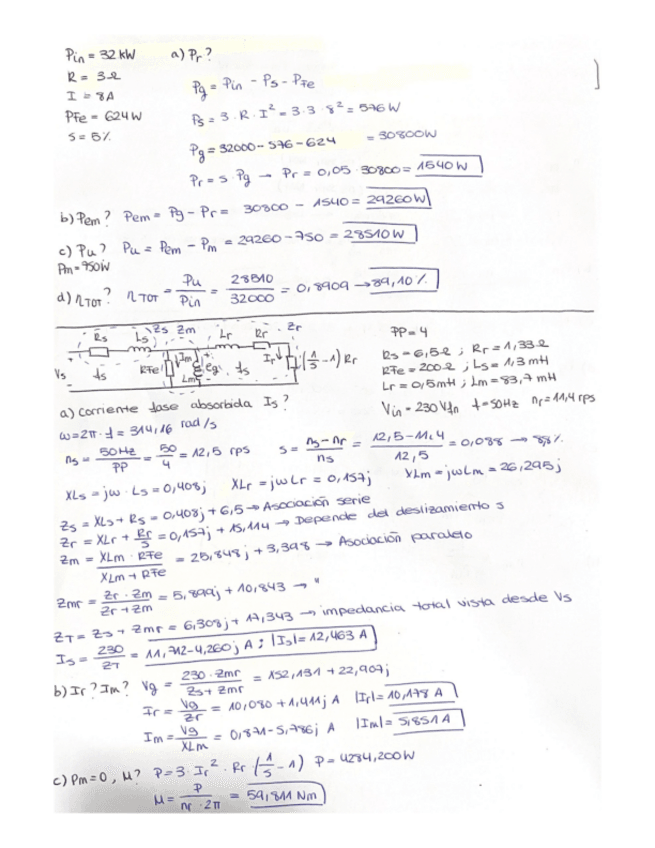 Pin = 32 kW a) Pr?
R = 3Ω
I = 8A
PFe = 624W
s = 5%
Pg = Pin - Ps - PFe
Ps = 3 · R · I² = 3·3·8² = 576 W
Pg = 32000 - 576 - 624 = 30800W
Pr = s · Pg → Pr = 0,05 · 30800 = 1540 W
b) Pem? Pem = Pg - Pr = 30800 - 1540 = 29260W
c) Pu? Pu = Pem - Pm = 29260 - 750 = 28510 W
Pm = 750W
d) ηTOT? ηTOT = Pu / Pin = 28510 / 32000 = 0,8909 → 89,10 %
Rs Ls Zs Zm Lr Rr Zr
Vs fs RFe Im Lm eg fs Ir (1/s - 1) Rr
PP = 4
Rs = 6,5Ω ; Rr = 1,33Ω
RFe = 200Ω ; Ls = 1,3 mH
Lr = 0,5mH ; Lm = 83,7 mH
Vin = 230 Vfn f = 50Hz nr = 11,4 rps
a) corriente fase absorbida Is?
ω = 2π · f = 314,16 rad/s
ns = 50Hz / PP = 50 / 4 = 12,5 rps s = ns - nr / ns = 12,5 - 11,4 / 12,5 = 0,088 → 8,8%
XLs = jω · Ls = 0,408j XLr = jωLr = 0,157j XLm = jωLm = 26,295j
Zs = XLs + Rs = 0,408j + 6,5 → Asociación serie
Zr = XLr + Rr/s = 0,157j + 15,114 → Depende del deslizamiento s
Zm = XLm · RFe / XLm + RFe = 25,848j + 3,398 → Asociación paralelo
Zmr = Zr · Zm / Zr + Zm = 5,899j + 10,843 → "
ZT = Zs + Zmr = 6,308j + 17,343 → impedancia total vista desde Vs
Is = 230 / ZT = 11,712 - 4,260j A ; |Is| = 12,463 A
b) Ir? Im? Vg = 230 · Zmr / Zs + Zmr = 152,131 + 22,907j
Ir = Vg / Zr = 10,080 + 1,411j A |Ir| = 10,178 A
Im = Vg / XLm = 0,871 - 5,786j A |Im| = 5,851 A
c) Pm = 0, M? P = 3 · Ir² · Rr (1/s - 1) P = 4284,200W
M = P / nr · 2π = 59,811 Nm